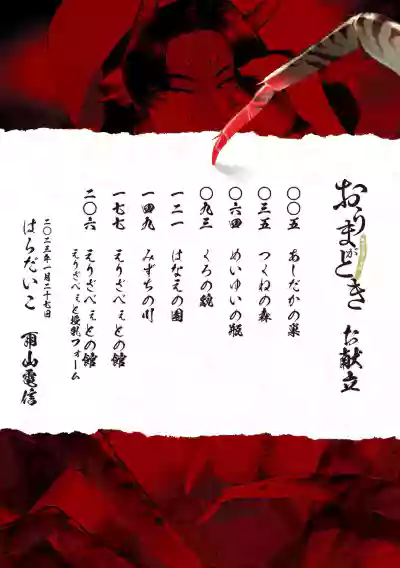 おりまがとき お献立
〇〇五 あしだかの巣
〇三五 つくねの森
〇六四 めいゆいの瓶
〇九三 くろの鏡
一二一 はなえの園
一四九 みずちの川
一七七 えりざべぇとの館
二〇六 えりざべぇとの館
えりざべぇと授乳フォーム
二〇二三年一月二十七日
はらだいこ 雨山電信